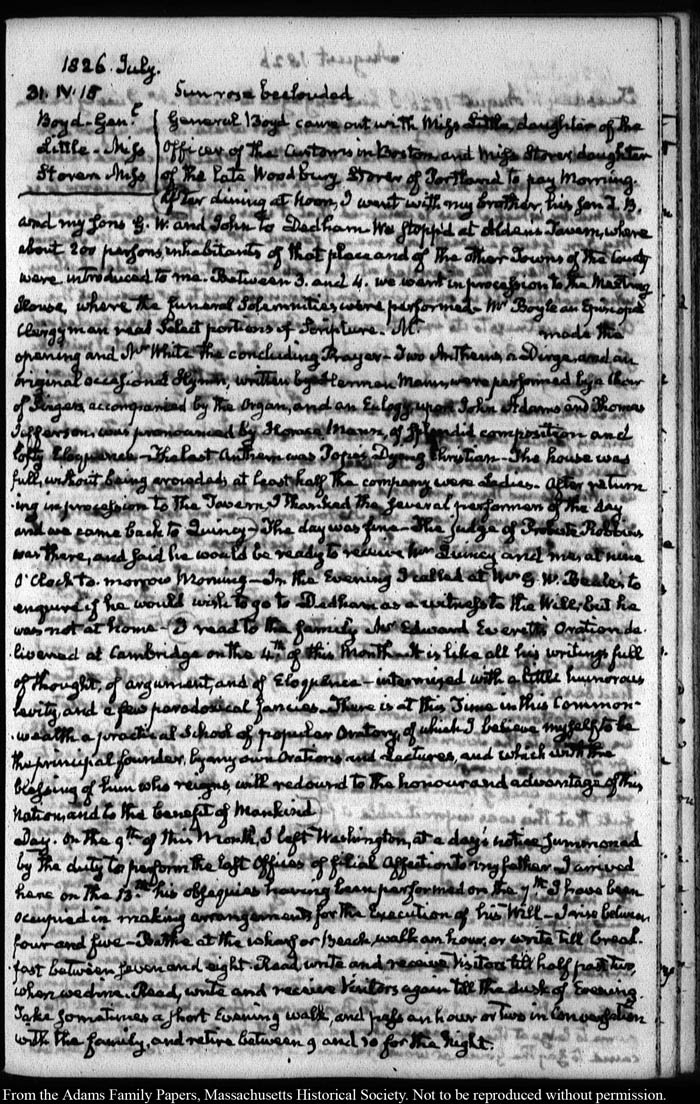 1826. July.
31. IV. 15 Sun rose beclouded
Boyd- Genl. General Boyd came out with Miss Little, daughter of the
Little- Miss Officer of the Customs in Boston and Miss Storer, daughter
Storer Miss of the late Woodbury Storer of Portland to pay Morning.
After dining at noon, I went with my brother, his son T. B.
and my Sons G. W. and John to Dedham. We stopp'd at Alden's Tavern, where
about 200 persons, inhabitants of that place and of the other Towns of the County
were introduced to me. Between 3. and 4. we went in procession to the Meeting
House, where the funeral Solemnities were performed. Mr Boyle an Episcopal
Clergyman read Select portions of Scripture. Mr. made the
opening and Mr White the concluding Prayer- Two Anthems, a Dirge, and an
original occasional Hymn, written by Herman Mann, were performed by a Choir
of Singers, accompanied by the Organ, and an Eulogy upon John Adams and Thomas
Jefferson, was pronounced by Horace Mann, of splendid composition and
lofty Eloquence- The last Anthem was Pope's Dying Christian- The house was
full, without being crowded; at least half the company were Ladies. After return
ing in procession to the Tavern, I thanked the several performers of the day
and we came back to Quincy- The day was fine- The Judge of Probate Robbins
was there, and said he would be ready to receive Mr Quincy and me, at nine
O'Clock to-morrow Morning- In the Evening I called at Mr G. W. Beale's to
enquire if he would wish to go to Dedham as a witness to the Will, but he
was not at home- I read to the family Mr Edward Everett's Oration de-
livered at Cambridge on the 4th of this Month- It is like all his writings full
of thought, of argument, and of Eloquence- intermixed with a little humorous
levity, and a few paradoxical fancies- There is at this Time in this Common-
wealth a practical School of popular Oratory, of which I believe myself to be
the principal founder, by my own Orations and Lectures, and which with the
blessing of him who reigns, will redound to the honour and advantage of this
Nation, and to the benefit of Mankind
Day. On the 9th of this Month, I left Washington, at a day's notice summoned
by the duty to perform the last Offices of filial Affection to my father- I arrived
here on the 13th his obsequies having been performed on the 7th I have been
occupied in making arrangements for the Execution of his Will- I rise between
four and five- Bathe at the wharf or Beach, walk an hour, or write till break-
fast between seven and eight. Read, write and receive Visitors till half past two,
when we dine. Read, write and receive Visitors again till the dusk of Evening
Take sometimes a short Evening walk, and pass an hour or two in Conversation
with the family, and retire between 9 and 10 for the Night.
From the Adams Family Papers, Massachusetts Historical Society. Not to be reproduced without permission.